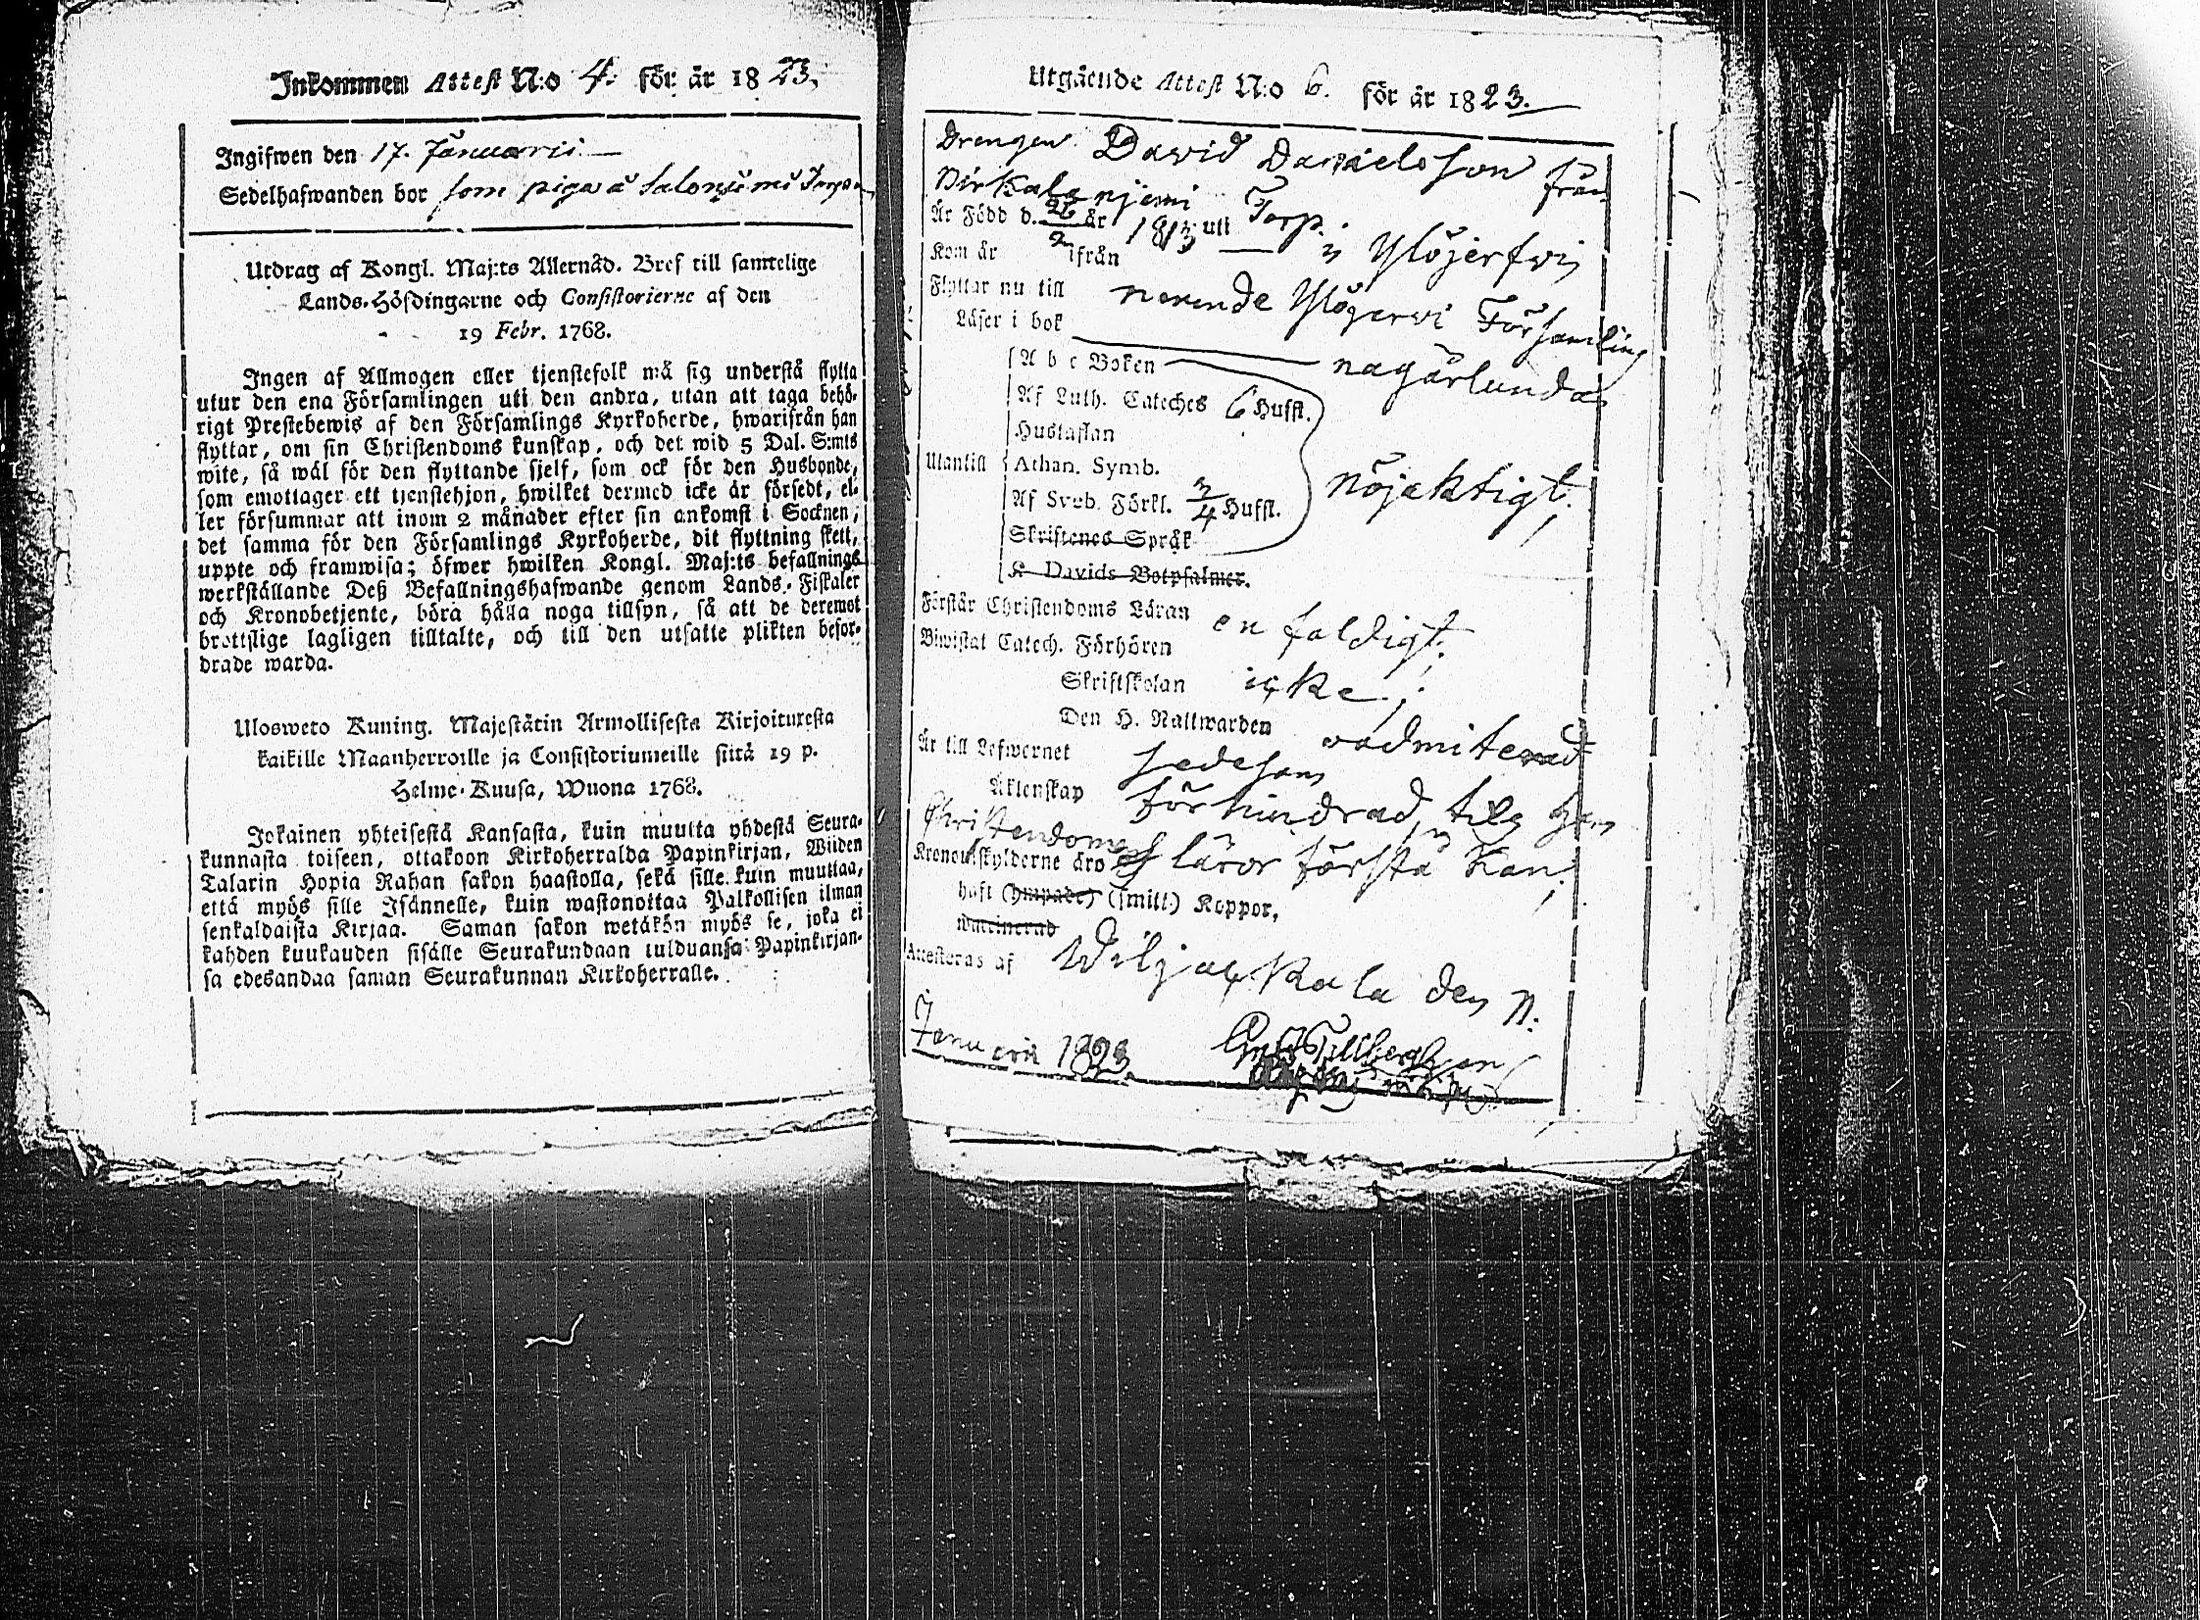 Inkommen Attest N:o 4. för år 1823,
Ingifwen den 17. Januarii
Sedelhafwanden bor som piga å
Utdrag af Kongl. Maj:ts Allernåd. Bref till samtelige
Lands-Höfdingarne och Consistorierne af den
19 Febr. 1768.
Ingen af Allmogen eller tjenstefolk må sig understå flytta
utur den ena Församlingen uti den andra, utan att taga behö-
rigt Prestebewis af den Församlings Kyrkoherde, hwarifrån han
flyttar, om sin Christendoms kunskap, och det wid 5 Dal. S:mts
wite, så wäl för den flyttande sjelf, som ock för den Husbonde,
som emottager ett tjenstehjon, hwilket dermed icke är försedt, el-
ler försummar att inom 2 månader efter sin ankomst i Socknen,
det samma för den Församlings Kyrkoherde, dit flyttning skett,
uppte och framwisa; öfwer hwilken Kongl. Maj:ts befallnings
werkställande Deß Befallningshafwande genom Lands-Fiskaler
och Kronobetjente, böra hålla noga tillsyn, så att de deremot
brottslige lagligen tilltalte, och till den utsatte plikten befor-
drade warda.
Ulosweto Kuning. Majestätin Armollisesta Kirjoituxesta
kaikille Maanherroille ja Consistoriumeille siitä 19 p.
Helme-Kuusa, Wuona 1768.
Jokainen yhteisestä Kansasta, kuin muutta yhdestä Seura-
kunnasta toiseen, ottakoon Kirkoherralda Papinkirjan, Wiiden
Talarin Hopia Rahan sakon haastolla, sekä sille kuin muuttaa,
että myös sille Isännelle, kuin wastonottaa Palkollisen ilman
senkaldaista Kirjaa. Saman sakon wetäkön myös se, joka ei
kahden kuukauden sisälle Seurakundaan tulduansa Papinkirjan-
sa edesandaa saman Seurakunnan Kirkoherralle.
Utgående Attest N:o 6. för år 1823.
Drengen David Danielsson från
Torp.
Är Född d. 26/2 år 1813 uti i Ylöjerfvi
Kom år ifrån
Flyttar nu till Ylöjervi Församling
Läser i bok någorlunda
A b c Boken
Af Luth. Cateches 6 Hufst.
Hustaflan
Utantill Athan. Symb. nöjaktigt,
Af Sveb. Förkl. 3/4 Hufst.
Skriftenes Språk
K Davids Botpsalmer.
Förstår Christendoms Läran enfaldigt,
Biwistat Catech. Förhören
Skriftskolan icke,
Den H. Nattwarden oadmiterad
Är till Lefwernet sedesam
Äktenskap förhindrad, tils han
Christendomens läror förstå kan,
Kronoutskylderne äro
haft (ympade) (smitt:) Koppor,
waccinerad
Attesteras af Wiljackala den
Januarii 1823.